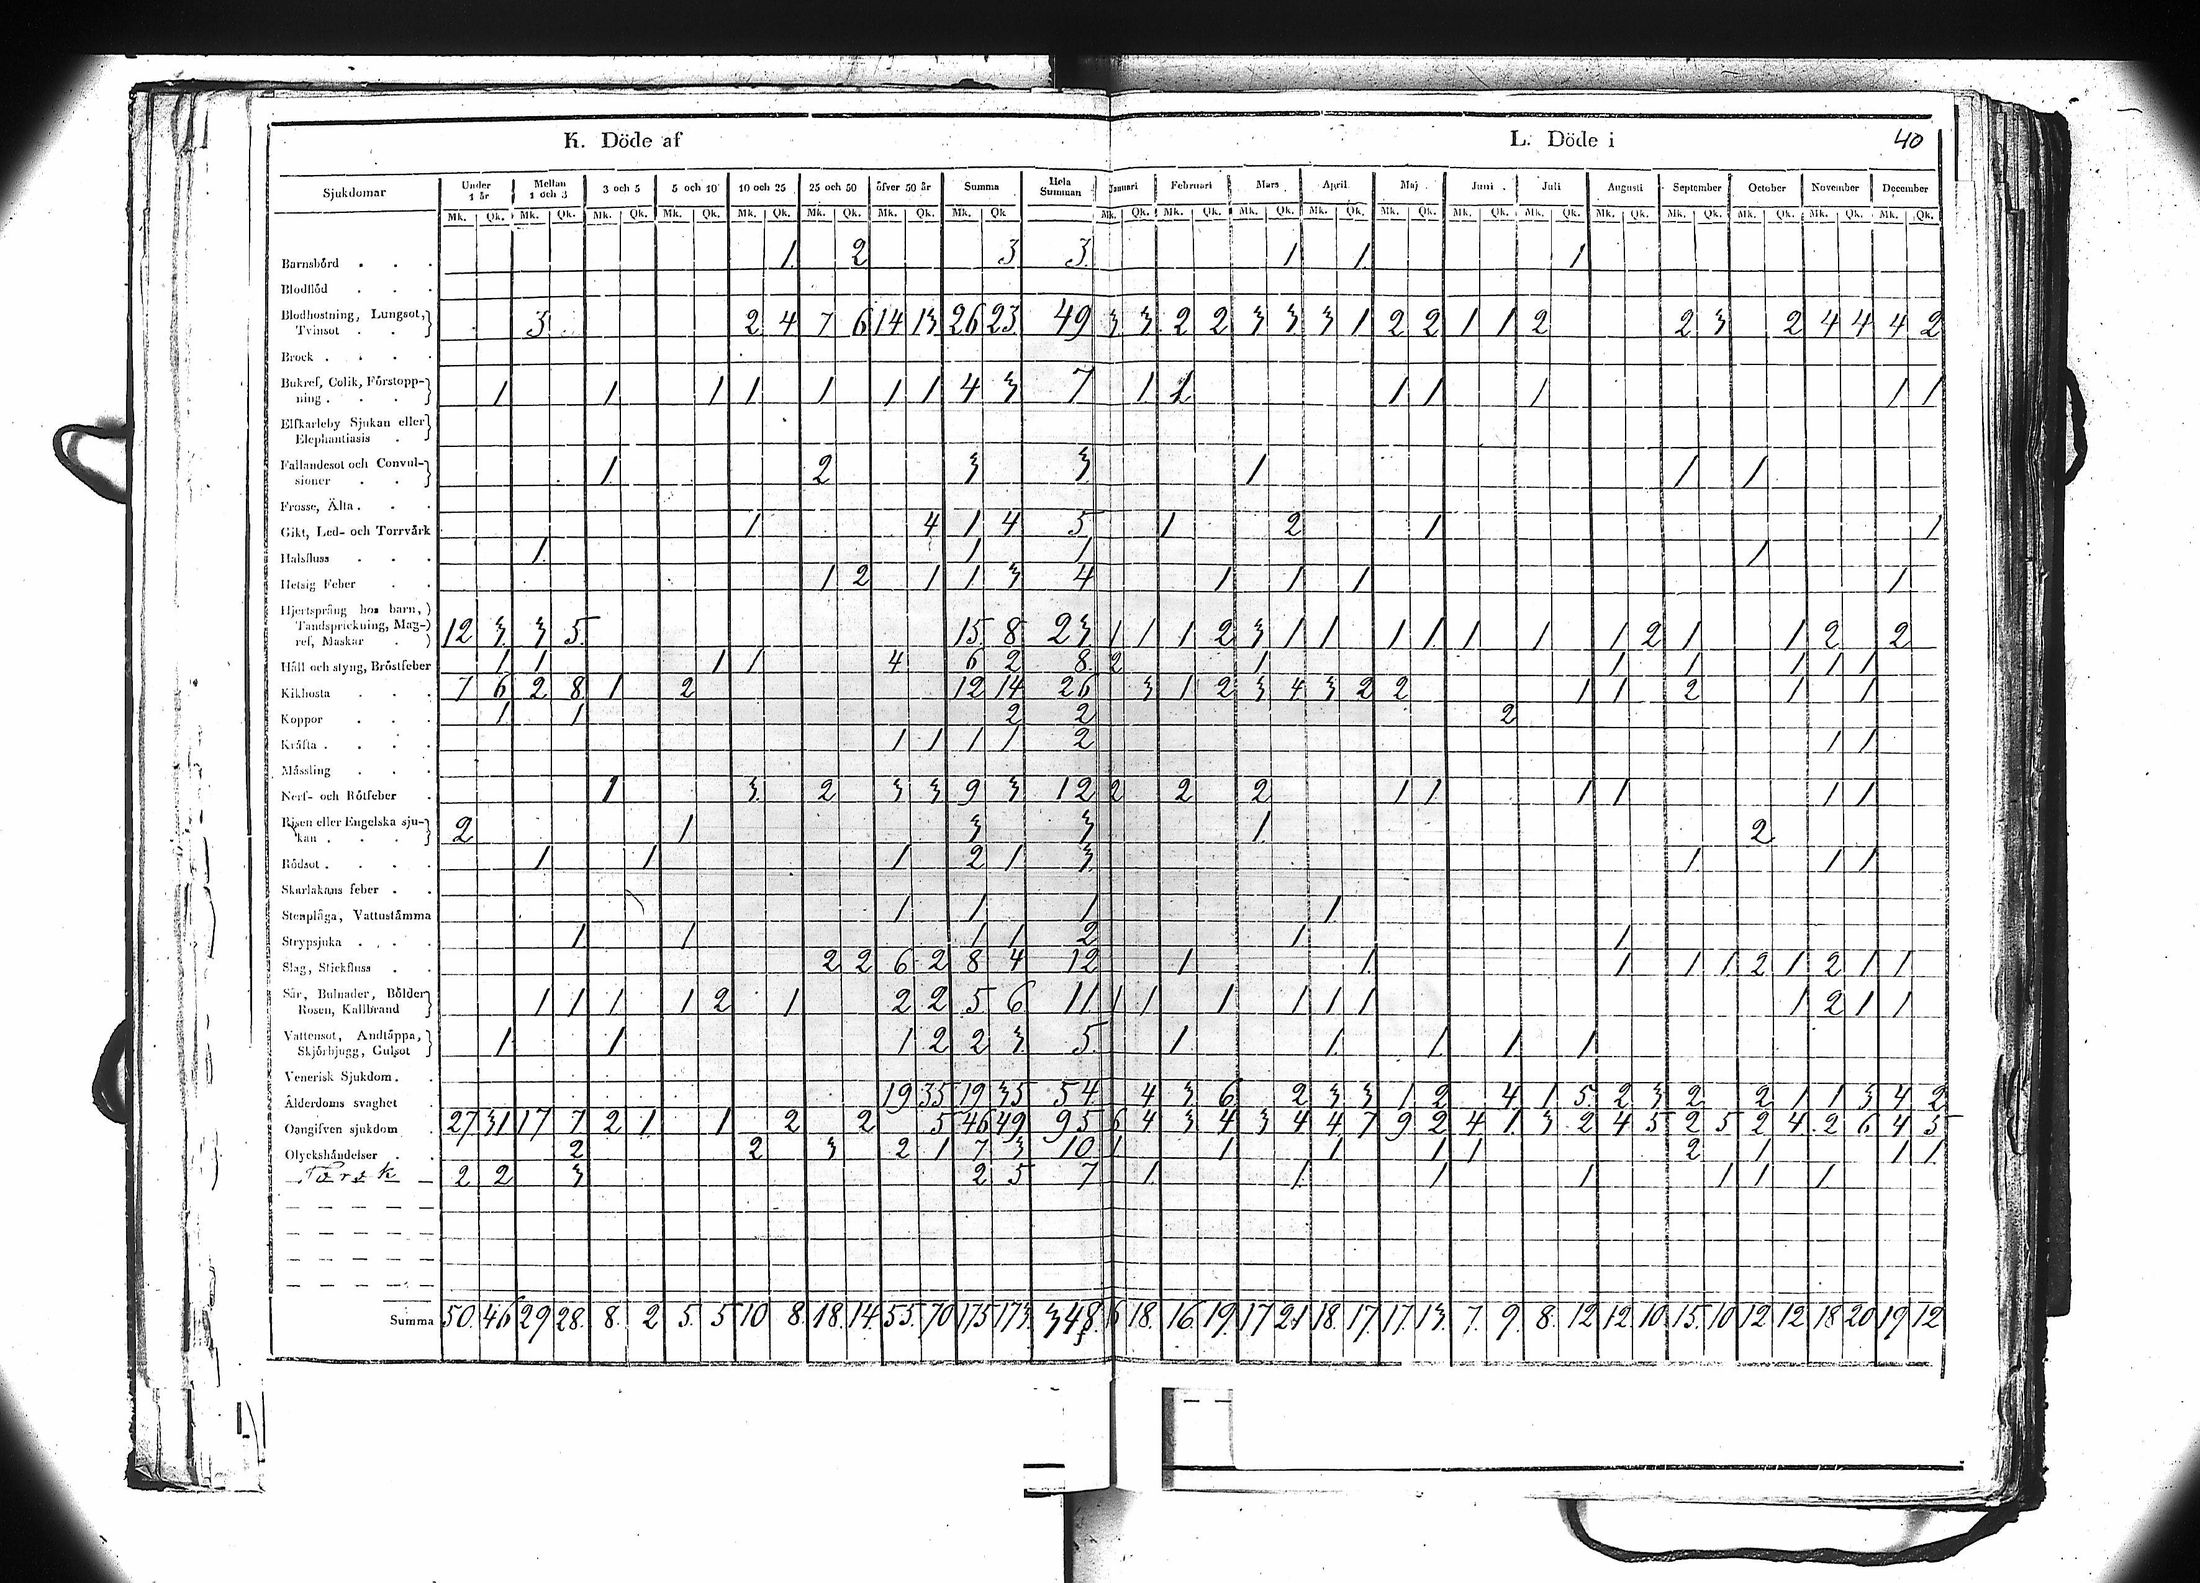 K. Döde af L. Döde i 40
Sjukdomar Under 1 år Mellan 1 och 3 3 och 5 5 och 10 10 och 25 25 och 50 öfver 50 år Summa Hela Summan Januari Februari Mars April Maj Juni Juli Augusti September October November December
Mk. Qk. Mk. Qk. Mk. Qk. Mk. Qk. Mk. Qk. Mk. Qk. Mk. Qk. Mk. Qk. Mk. Qk. Mk. Qk. Mk. Qk. Mk. Qk. Mk. Qk. Mk. Qk. Mk. Qk. Mk. Qk. Mk. Qk. Mk. Qk. Mk. Qk. Mk. Qk.
Barnsbörd 1 2 3 3 1 1 1
Blodflöd
Blodhostning, Lungsot,
Tvinsot 3 2 4 7 6 14 13 26 23 49 3 3 2 2 3 3 3 1 2 2 1 1 2 2 3 2 4 4 4 2
Brock
Bukref, Colik, Förstopp-
ning 1 1 1 1 1 1 1 4 3 7 1 1 1 1 1 1 1
Elfkarleby Sjukan eller
Elephantiasis
Fallandesot och Convul-
sioner 1 2 3 3 1 1 1
Frosse, Älta
Gikt, Led- och Torrvärk 1 4 1 4 5 1 2 1 1
Halsfluss 1 1 1 1
Hetsig Feber 1 2 1 1 3 4 1 1 1 1
Hjertsprång hos barn,
Tandsprickning, Mag-
ref, Maskar 12 3 3 5 15 8 23 1 1 1 2 3 1 1 1 1 1 1 1 2 1 1 2 2
Håll och styng, Bröstfeber 1 1 1 1 4 6 2 8 2 1 1 1 1 1 1
Kikhosta 7 6 2 8 1 2 12 14 26 3 1 2 3 4 3 2 2 1 1 2 1 1
Koppor 1 1 2 2 2
Kräfta 1 1 1 1 2 1 1
Mässling
Nerf- och Rötfeber 1 3 2 3 3 9 3 12 2 2 2 1 1 1 1 1 1
Risen eller Engelska sju-
kan 2 1 3 3 1 2
Rödsot 1 1 1 2 1 3 1 1 1
Skarlakans feber
Stenplåga, Vattustämma 1 1 1 1
Strypsjuka 1 1 1 1 2 1 1
Slag, Stickfluss 2 2 6 2 8 4 12 1 1 1 1 1 2 1 2 1 1
Sår, Bulnader, Bölder
Rosen, Kallbrand 1 1 1 1 2 1 2 2 5 6 11 1 1 1 1 1 1 1 2 1 1
Vattensot, Andtäppa,
Skjörbjugg, Gulsot 1 1 1 2 2 3 5 1 1 1 1 1
Venerisk Sjukdom
Ålderdoms svaghet 19 35 19 35 54 4 3 6 2 3 3 1 2 4 1 5 2 3 2 2 1 1 3 4 2
Oangifven sjukdom 27 31 17 7 2 1 1 2 2 5 46 49 95 6 4 3 4 3 4 4 7 9 2 4 1 3 2 4 5 2 5 2 4 2 6 4 5
Olyckshändelser 2 2 3 2 1 7 3 10 1 1 1 1 1 2 1 1 1
Torsk 2 2 3 2 5 7 1 1 1 1 1 1 1
Summa 50 46 29 28 8 2 5 5 10 8 18 14 55 70 175 173 348 6 18 16 19 17 21 18 17 17 13 7 9 8 12 12 10 15 10 12 12 18 20 19 12